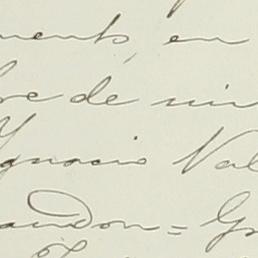 ments, en
bre de nin
Ygnacio Val
andon=Gr